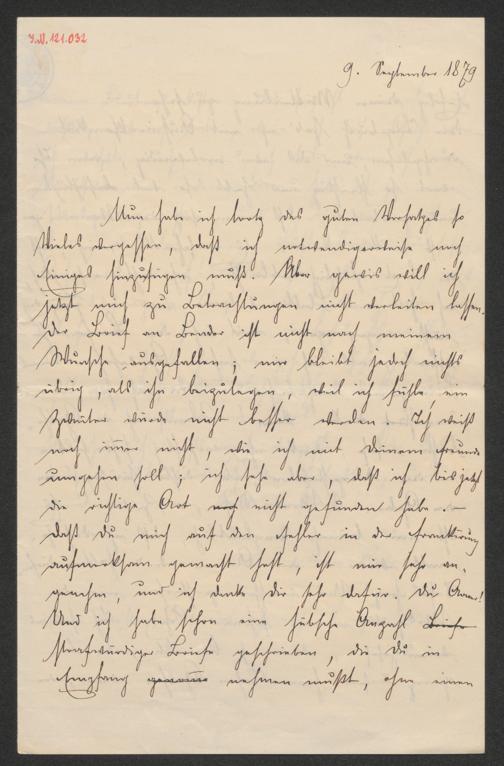 I.N. 121.032
9. September 1879
Nun habe ich trotz des guten Vorsatzes so
Vieles vergessen, daß ich notwendigerweise noch
Einiges hinzufügen muß. Aber gewis will ich
jetzt mich zu Betrachtungen nicht verleiten lassen.
Der Brief an Bender ist nicht nach meinem
Wunsche ausgefallen; mir bleibt jedoch nichts
übrig, als ihn beizulegen, weil ich fühle ein
Zweiter würde nicht besser werden. Ich weiß
noch immer nicht, wie ich mit Deinem Freunde
umgehen soll; ich sehe aber, daß ich bis jetzt
die richtige Art noch nicht gefunden habe. –
Daß Du mich auf den Fehler in der Frankirung
aufmerksam gemacht hast, ist mir sehr an-
genehm, und ich danke Dir sehr dafür. Du Arme!
Und ich habe schon eine hübsche Anzahl Briefe
strafwürdiger Briefe geschrieben, die Du in
Empfang genomme nehmen mußt, ohne einen